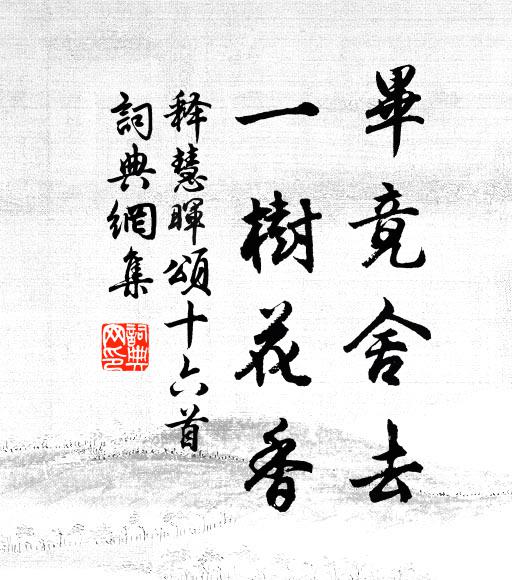 畢竟舍去
一樹花香
释慧暉頌十六首
詞典網集
詞典網印